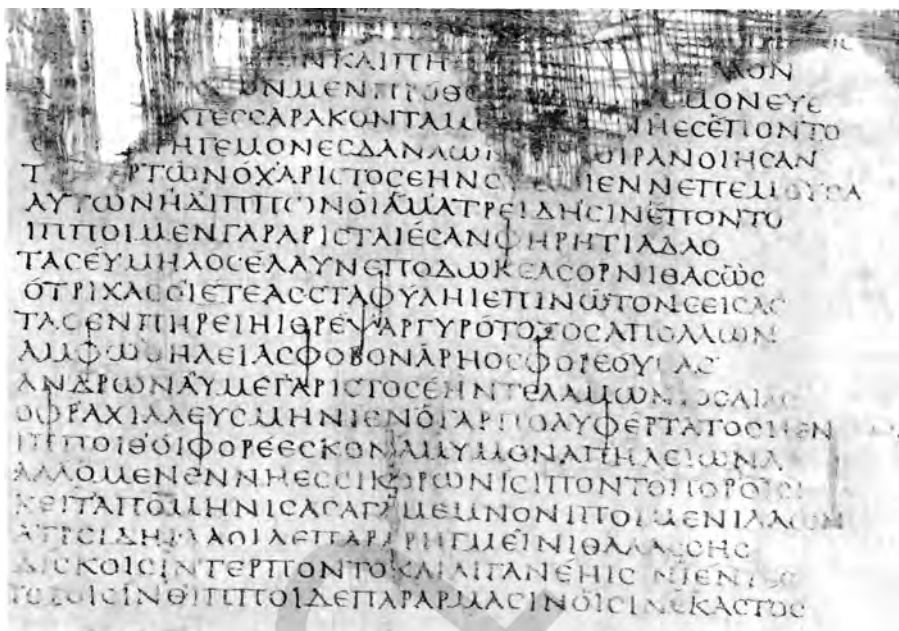 ΝΚΑΙΠΗ ΛΛΟΝ
ΩΝΜΕΝΠΡΟΘΟ ΕΜΟΝΕΥΕ
ΑΤΕϹϹΑΡΑΚΟΝΤΑΜΕ ΝΗΕϹΕΠΟΝΤΟ
ΡΗΓΕΜΟΝΕϹΔΑΝΑΩΝ ΟΙΡΑΝΟΙΗϹΑΝ
Τ ΡΤΩΝΟΧΑΡΙϹΤΟϹΕΗΝϹ ΕΝΝΕΠΕΜΟΥϹΑ
ΑΥΤΩΝΗΔΙΠΠΩΝΟΙΑΜΑΤΡΕΙΔΗϹΙΝΕΠΟΝΤΟ
ΙΠΠΟΙΜΕΝΓΑΡΑΡΙϹΤΑΙΕϹΑΝΦΗΡΗΤΙΑΔΑΟ
ΤΑϹΕΥΜΗΛΟϹΕΛΑΥΝΕΠΟΔΩΚΕΑϹΟΡΝΙΘΑϹΩϹ
ΟΤΡΙΧΑϹΟΙΕΤΕΑϹϹΤΑΦΥΛΗΙΕΠΙΝΩΤΟΝΕΕΙϹΑϹ
ΤΑϹΕΝΠΗΡΕΙΗΙΘΡΕΨΑΡΓΥΡΟΤΟΞΟϹΑΠΟΛΛΩΝ
ΑΜΦΩΘΗΛΕΙΑϹΦΟΒΟΝΑΡΗΟϹΦΟΡΕΟΥϹΑϹ
ΑΝΔΡΩΝΑΥΜΕΓΑΡΙϹΤΟϹΕΗΝΤΕΛΑΜΩΝΙΟϹΑΙΑϹ
ΟΦΡΑΧΙΛΛΕΥϹΜΗΝΙΕΝΟΓΑΡΠΟΛΥΦΕΡΤΑΤΟϹΗΕΝ
ΙΠΠΟΙΘΟΙΦΟΡΕΕϹΚΟΝΑΜΥΜΟΝΑΠΗΛΕΙΩΝΑ
ΑΛΛΟΜΕΝΕΝΝΗΕϹϹΙΚΟΡΩΝΙϹΙΠΟΝΤΟΠΟΡΟΙϹΙ
ΚΕΙΤΑΠΟΜΗΝΙϹΑϹΑΓΑΜΕΜΝΟΝΙΠΟΙΜΕΝΙΛΑΩΝ
ΑΤΡΕΙΔΗΙΛΑΟΙΔΕΠΑΡΑΡΗΓΜΕΙΝΙΘΑΛΑϹϹΗϹ
ΔΙϹΚΟΙϹΙΝΤΕΡΠΟΝΤΟΚΑΙΑΙΓΑΝΕΗΙϹ ΝΙΕΝΤΕϹ
ΤΟΞΟΙϹΙΝΘΙΠΠΟΙΔΕΠΑΡΑΡΜΑϹΙΝΟΙϹΙΝΕΚΑϹΤΟϹ